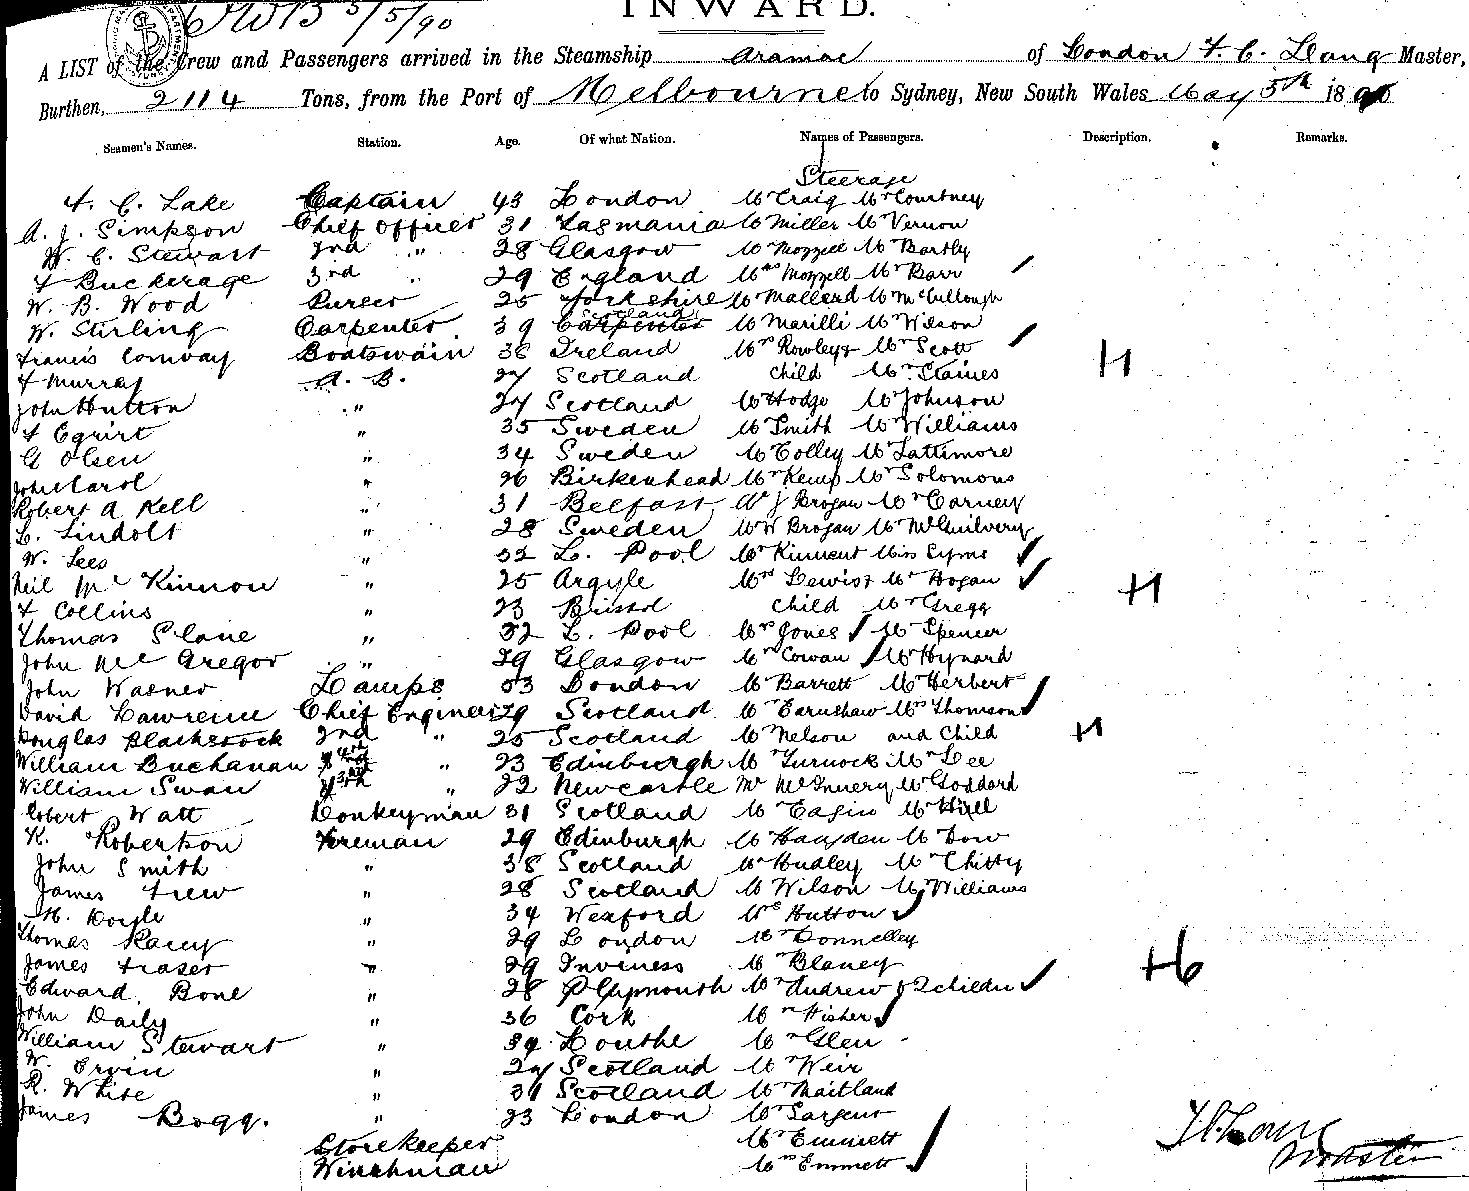 INWARD.
5/5/90
A LIST of the Crew and Passengers arrived in the Steamship Aramac of London F. C. Lang Master,
Burthen, 2114 Tons, from the Port of Melbourne to Sydney, New South Wales May 5th 1890
Seamen's Names. Station. Age. Of what Nation. Names of Passengers. Description. Remarks.
Steerage
F. C. Lake Captain 43 London Mr Craig Mr Courtney
A. J. Simpson Chief Officer 31 Tasmania Mr Miller Mr Vernon
W. C. Stewart 2nd " 28 Glasgow Mr Mozzell Mr Bartly
F Buckerage 3rd " 29 England Mrs Mozzell Mr Barr
W. B. Wood Purser 25 Yorkshire Mr Mallard Mr McCullough
W. Stirling Carpenter 39 Carpenter Scotland Mr Marilli Mr Wilson
Francis Conway Boatswain 36 Ireland Mrs Rowley & Mr Scott
F Murray A. B. 27 Scotland child Mr Staines H
John Hutton " 27 Scotland Mr Hodge Mr Johnson
F Egrirt " 35 Sweden Mr Smith Mr Williams
G Olsen " 34 Sweden Mr Colley Mr Lattimore
John Carol " 26 Birkenhead Mr Kemp Mr Solomons
Robert A Kell " 31 Belfast Mr J Brogan Mr Carney
L. Lindolt " 28 Sweden Mr W Brogan Mr McGuilvery
W. Lees " 32 L. Pool Mr Kinment Miss Syms
Neil McKinnon " 25 Argyle Mrs Lewis & Mr Hogan
F Collins " 23 Bristol child Mr Gregg H
Thomas Slane " 32 L. Pool Mrs Jones Mr Spencer
John McGregor " 29 Glasgow Mrs Cowan Mr Hynard
John Wasner Lamps 53 London Mr Barrett Mr Herbert
David Lawrence Chief Engineer 29 Scotland Mr Earnshaw Mrs Thomson
Douglas Blackstock 2nd " 25 Scotland Mr Nelson and Child H
William Buchanan 4th " 23 Edinburgh Mr Turnock Mr Lee
William Swan 3rd " 22 Newcastle Mr McInnery Mr Goddard
Robert Watt Donkeyman 31 Scotland Mr Eagin Mr Hill
K. Robertson Fireman 29 Edinburgh Mr Haysden Mr Dow
John Smith " 38 Scotland Mr Hudley Mr Chitty
James Frew " 28 Scotland Mr Wilson Mr Williams
H. Doyle " 34 Wexford Mrs Hutton
Thomas Racey " 29 London Mr Donnelley
James Fraser " 29 Inviness Mr Blaney
Edward Bone " 28 Plymouth Mrs Andrew & 2 childn H6
John Daily " 36 Cork Mrs Fisher
William Stewart " 39 Louthe Mr Glen
W. Ervin " 27 Scotland Mr Weir
R. White " 31 Scotland Mr Maitland
James Bogg. " 23 London Mr Sargent
Storekeeper Mr Emmett
Winchman Mrs Emmett
F. C. Lang
Master